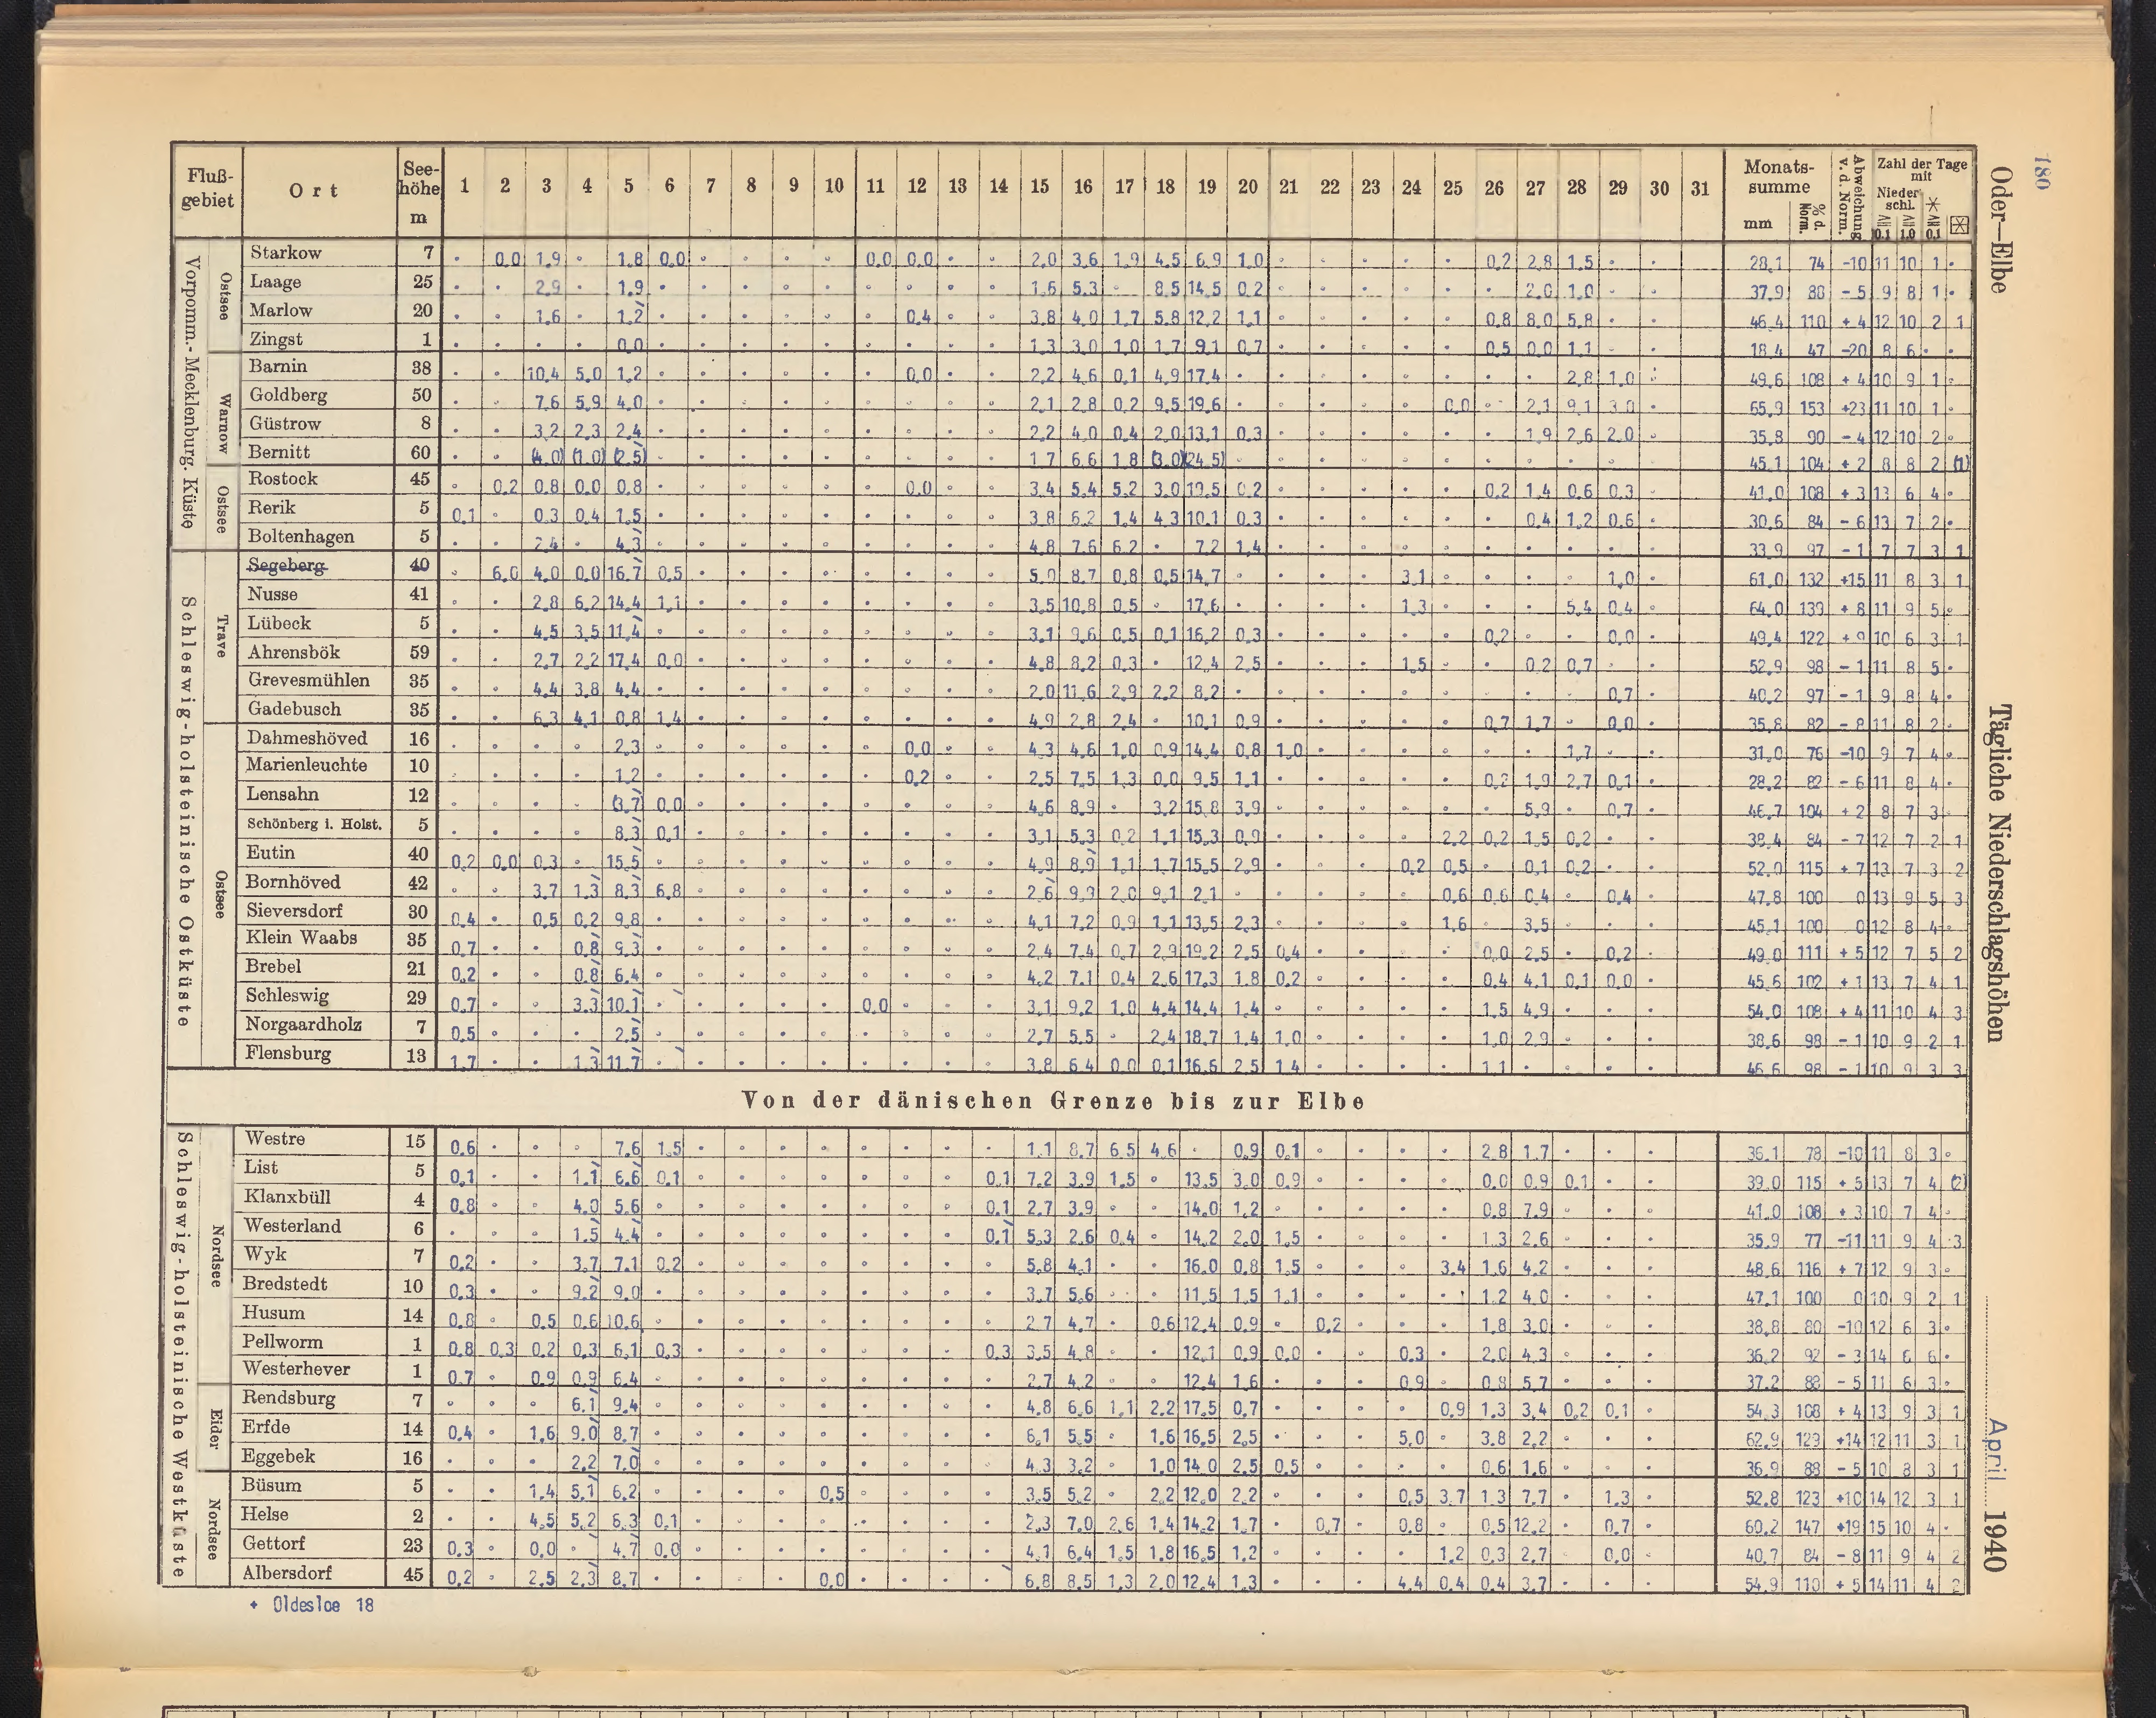 180
Oder—Elbe
Tägliche Niederschlagshöhen
April 1940
Fluß-gebiet Ort See-höhe m 1 2 3 4 5 6 7 8 9 10 11 12 13 14 15 16 17 18 19 20 21 22 23 24 25 26 27 28 29 30 31 Monats-summe mm % d. Norm. Abweichung v. d. Norm. Zahl der Tage mit Nieder schl. ≧ 0.1 ≧ 1.0 ≧ 0.1
Vorpomm.- Mecklenburg. Küste
Ostsee
Starkow 7 . 0.0 1.9 . 1.8 0.0 . . . . 0.0 0.0 . . 2.0 3.6 1.9 4.5 6.9 1.0 . . . . . 0.2 2.8 1.5 . . 28.1 74 -10 11 10 1 .
Laage 25 . . 2.9 . 1.9 . . . . . . . . . 1.6 5.3 . 8.5 14.5 0.2 . . . . . . 2.0 1.0 . . 37.9 88 -5 9 8 1 .
Marlow 20 . . 1.6 . 1.2 . . . . . . 0.4 . . 3.8 4.0 1.7 5.8 12.2 1.1 . . . . . 0.8 8.0 5.8 . . 46.4 110 +4 12 10 2 1
Zingst 1 . . . . 0.0 . . . . . . . . . 1.3 3.0 1.0 1.7 9.1 0.7 . . . . . 0.5 0.0 1.1 . . 18.4 47 -20 8 6 . .
Warnow
Barnin 38 . . 10.4 5.0 1.2 . . . . . . 0.0 . . 2.2 4.6 0.1 4.9 17.4 . . . . . . . . 2.8 1.0 . 49.6 108 +4 10 9 1 .
Goldberg 50 . . 7.6 5.9 4.0 . . . . . . . . . 2.1 2.8 0.2 9.5 19.6 . . . . . 0.0 . 2.1 9.1 3.0 . 65.9 153 +23 11 10 1 .
Güstrow 8 . . 3.2 2.3 2.4 . . . . . . . . . 2.2 4.0 0.4 2.0 13.1 0.3 . . . . . . 1.9 2.6 2.0 . 35.8 90 -4 12 10 2 .
Bernitt 60 . . (4.0) (1.0) (2.5) . . . . . . . . . 1.7 6.6 1.8 (3.0) (24.5) . . . . . . . . . . . 45.1 104 +2 8 8 2 (1)
Ostsee
Rostock 45 . 0.2 0.8 0.0 0.8 . . . . . . 0.0 . . 3.4 5.4 5.2 3.0 19.5 0.2 . . . . . 0.2 1.4 0.6 0.3 . 41.0 108 +3 13 6 4 .
Rerik 5 0.1 . 0.3 0.4 1.5 . . . . . . . . . 3.8 6.2 1.4 4.3 10.1 0.3 . . . . . . 0.4 1.2 0.6 . 30.6 84 -6 13 7 2 .
Boltenhagen 5 . . 2.4 . 4.3 . . . . . . . . . 4.8 7.6 6.2 . 7.2 1.4 . . . . . . . . . . 33.9 97 -1 7 7 3 1
Schleswig-holsteinische Ostküste
Trave
Segeberg 40 . 6.0 4.0 0.0 16.7 0.5 . . . . . . . . 5.0 8.7 0.8 0.5 14.7 . . . . 3.1 . . . . 1.0 . 61.0 132 +15 11 8 3 1
Nusse 41 . . 2.8 6.2 14.4 1.1 . . . . . . . . 3.5 10.8 0.5 . 17.6 . . . . 1.3 . . . 5.4 0.4 . 64.0 139 +8 11 9 5 .
Lübeck 5 . . 4.5 3.5 11.4 . . . . . . . . . 3.1 9.6 0.5 0.1 16.2 0.3 . . . . . 0.2 . . 0.0 . 49.4 122 +9 10 6 3 1
Ahrensbök 59 . . 2.7 2.2 17.4 0.0 . . . . . . . . 4.8 8.2 0.3 . 12.4 2.5 . . . 1.5 . . 0.2 0.7 . . 52.9 98 -1 11 8 5 .
Grevesmühlen 35 . . 4.4 3.8 4.4 . . . . . . . . . 2.0 11.6 2.9 2.2 8.2 . . . . . . . . . 0.7 . 40.2 97 -1 9 8 4 .
Gadebusch 35 . . 6.3 4.1 0.8 1.4 . . . . . . . . 4.9 2.8 2.4 . 10.1 0.9 . . . . . 0.7 1.7 . 0.0 . 35.8 82 -8 11 8 2 .
Ostsee
Dahmeshöved 16 . . . . 2.3 . . . . . . 0.0 . . 4.3 4.6 1.0 0.9 14.4 0.8 1.0 . . . . . . 1.7 . . 31.0 76 -10 9 7 4 .
Marienleuchte 10 . . . . 1.2 . . . . . . 0.2 . . 2.5 7.5 1.3 0.0 9.5 1.1 . . . . . 0.2 1.9 2.7 0.1 . 28.2 82 -6 11 8 4 .
Lensahn 12 . . . . (3.7) 0.0 . . . . . . . . 4.6 8.9 . 3.2 15.8 3.9 . . . . . . 5.9 . 0.7 . 46.7 104 +2 8 7 3 .
Schönberg i. Holst. 5 . . . . 8.3 0.1 . . . . . . . . 3.1 5.3 0.2 1.1 15.3 0.9 . . . . 2.2 0.2 1.5 0.2 . . 38.4 84 -7 12 7 2 1
Eutin 40 0.2 0.0 0.3 . 15.5 . . . . . . . . . 4.9 8.9 1.1 1.7 15.5 2.9 . . . 0.2 0.5 . 0.1 0.2 . . 52.0 115 +7 13 7 3 2
Bornhöved 42 . . 3.7 1.3 8.3 6.8 . . . . . . . . 2.6 9.9 2.0 9.1 2.1 . . . . . 0.6 0.6 0.4 . 0.4 . 47.8 100 0 13 9 5 3
Sieversdorf 30 0.4 . 0.5 0.2 9.8 . . . . . . . . . 4.1 7.2 0.9 1.1 13.5 2.3 . . . . 1.6 . 3.5 . . . 45.1 100 0 12 8 4 .
Klein Waabs 35 0.7 . . 0.8 9.3 . . . . . . . . . 2.4 7.4 0.7 2.9 19.2 2.5 0.4 . . . . 0.0 2.5 . 0.2 . 49.0 111 +5 12 7 5 2
Brebel 21 0.2 . . 0.8 6.4 . . . . . . . . . 4.2 7.1 0.4 2.6 17.3 1.8 0.2 . . . . 0.4 4.1 0.1 0.0 . 45.6 102 +1 13 7 4 1
Schleswig 29 0.7 . . 3.3 10.1 . . . . . 0.0 . . . 3.1 9.2 1.0 4.4 14.4 1.4 . . . . . 1.5 4.9 . . . 54.0 108 +4 11 10 4 3
Norgaardholz 7 0.5 . . . 2.5 . . . . . . . . . 2.7 5.5 . 2.4 18.7 1.4 1.0 . . . . 1.0 2.9 . . . 38.6 98 -1 10 9 2 1
Flensburg 13 1.7 . . 1.3 11.7 . . . . . . . . . 3.8 6.4 0.0 0.1 16.6 2.5 1.4 . . . . 1.1 . . . . 46.6 98 -1 10 9 3 3
Von der dänischen Grenze bis zur Elbe
Schleswig-holsteinische Westküste
Nordsee
Westre 15 0.6 . . . 7.6 1.5 . . . . . . . . 1.1 8.7 6.5 4.6 . 0.9 0.1 . . . . 2.8 1.7 . . . 36.1 78 -10 11 8 3 .
List 5 0.1 . . 1.1 6.6 0.1 . . . . . . . 0.1 7.2 3.9 1.5 . 13.5 3.0 0.9 . . . . 0.0 0.9 0.1 . . 39.0 115 +5 13 7 4 (2)
Klanxbüll 4 0.8 . . 4.0 5.6 . . . . . . . . 0.1 2.7 3.9 . . 14.0 1.2 . . . . . 0.8 7.9 . . . 41.0 108 +3 10 7 4 .
Westerland 6 . . . 1.5 4.4 . . . . . . . . 0.1 5.3 2.6 0.4 . 14.2 2.0 1.5 . . . . 1.3 2.6 . . . 35.9 77 -11 11 9 4 3
Wyk 7 0.2 . . 3.7 7.1 0.2 . . . . . . . . 5.8 4.1 . . 16.0 0.8 1.5 . . . 3.4 1.6 4.2 . . . 48.6 116 +7 12 9 3 .
Bredstedt 10 0.3 . . 9.2 9.0 . . . . . . . . . 3.7 5.6 . . 11.5 1.5 1.1 . . . . 1.2 4.0 . . . 47.1 100 0 10 9 2 1
Husum 14 0.8 . 0.5 0.6 10.6 . . . . . . . . . 2.7 4.7 . 0.6 12.4 0.9 . 0.2 . . . 1.8 3.0 . . . 38.8 80 -10 12 6 3 .
Pellworm 1 0.8 0.3 0.2 0.3 6.1 0.3 . . . . . . . 0.3 3.5 4.8 . . 12.1 0.9 0.0 . . 0.3 . 2.0 4.3 . . . 36.2 92 -3 14 6 6 .
Westerhever 1 0.7 . 0.9 0.9 6.4 . . . . . . . . . 2.7 4.2 . . 12.4 1.6 . . . 0.9 . 0.8 5.7 . . . 37.2 88 -5 11 6 3 .
Eider
Rendsburg 7 . . . 6.1 9.4 . . . . . . . . . 4.8 6.6 1.1 2.2 17.5 0.7 . . . . 0.9 1.3 3.4 0.2 0.1 . 54.3 108 +4 13 9 3 1
Erfde 14 0.4 . 1.6 9.0 8.7 . . . . . . . . . 6.1 5.5 . 1.6 16.5 2.5 . . . 5.0 . 3.8 2.2 . . . 62.9 129 +14 12 11 3 1
Eggebek 16 . . . 2.2 7.0 . . . . . . . . . 4.3 3.2 . 1.0 14.0 2.5 0.5 . . . . 0.6 1.6 . . . 36.9 88 -5 10 8 3 1
Nordsee
Büsum 5 . . 1.4 5.1 6.2 . . . . 0.5 . . . . 3.5 5.2 . 2.2 12.0 2.2 . . . 0.5 3.7 1.3 7.7 . 1.3 . 52.8 123 +10 14 12 3 1
Helse 2 . . 4.5 5.2 6.3 0.1 . . . . . . . . 2.3 7.0 2.6 1.4 14.2 1.7 . 0.7 . 0.8 . 0.5 12.2 . 0.7 . 60.2 147 +19 15 10 4 .
Gettorf 23 0.3 . 0.0 . 4.7 0.0 . . . . . . . . 4.1 6.4 1.5 1.8 16.5 1.2 . . . . 1.2 0.3 2.7 . 0.0 . 40.7 84 -8 11 9 4 2
Albersdorf 45 0.2 . 2.5 2.3 8.7 . . . . 0.0 . . . . 6.8 8.5 1.3 2.0 12.4 1.3 . . . 4.4 0.4 0.4 3.7 . . . 54.9 110 +5 14 11 4 2
+ Oldesloe 18